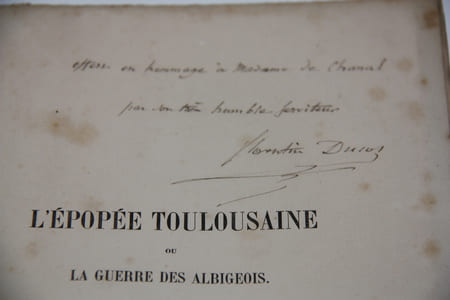 offert en hommage à Madame de Chanal
par son très humble serviteur
Florentin Ducos
L'ÉPOPÉE TOULOUSAINE
OU
LA GUERRE DES ALBIGEOIS.